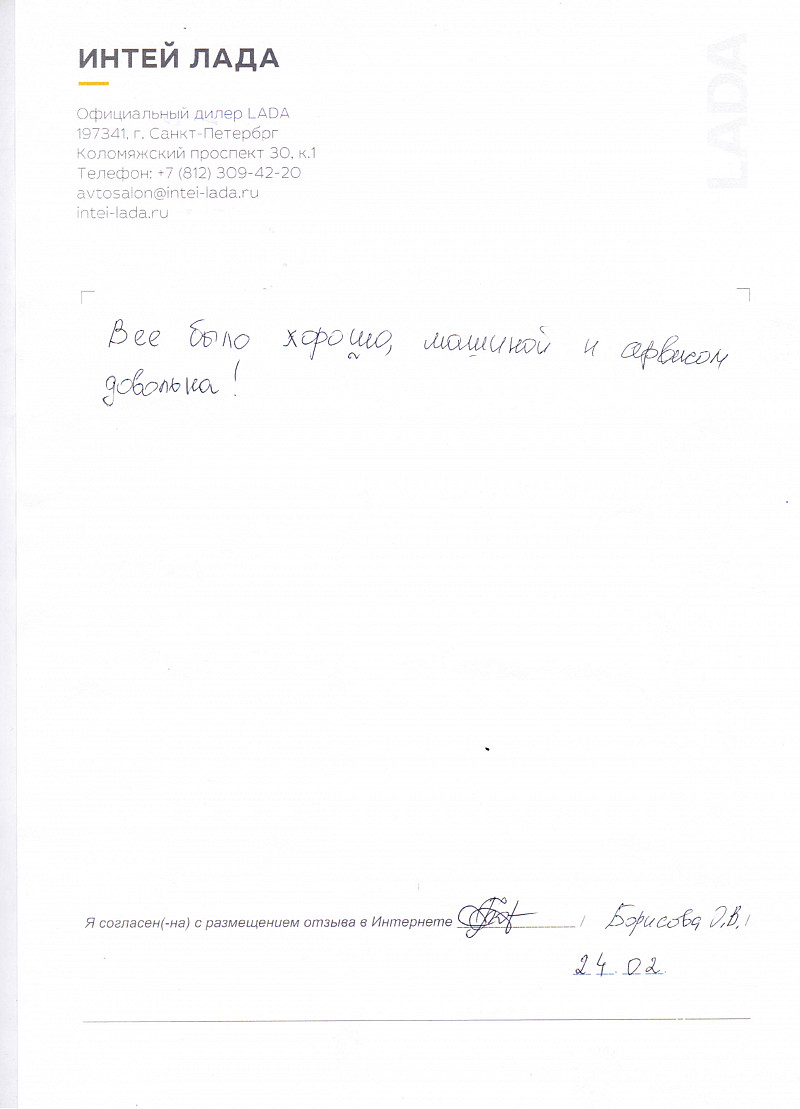 ИНТЕЙ ЛАДА
LADA
Официальный дилер LADA
197341, г. Санкт-Петербрг
Коломяжский проспект 30, к.1
Телефон: +7 (812) 309-42-20
avtosalon@intei-lada.ru
intei-lada.ru
Все было хорошо, машиной и сервисом
довольна!
Я согласен(-на) с размещением отзыва в Интернете / Борисова О.В. /
24.02.